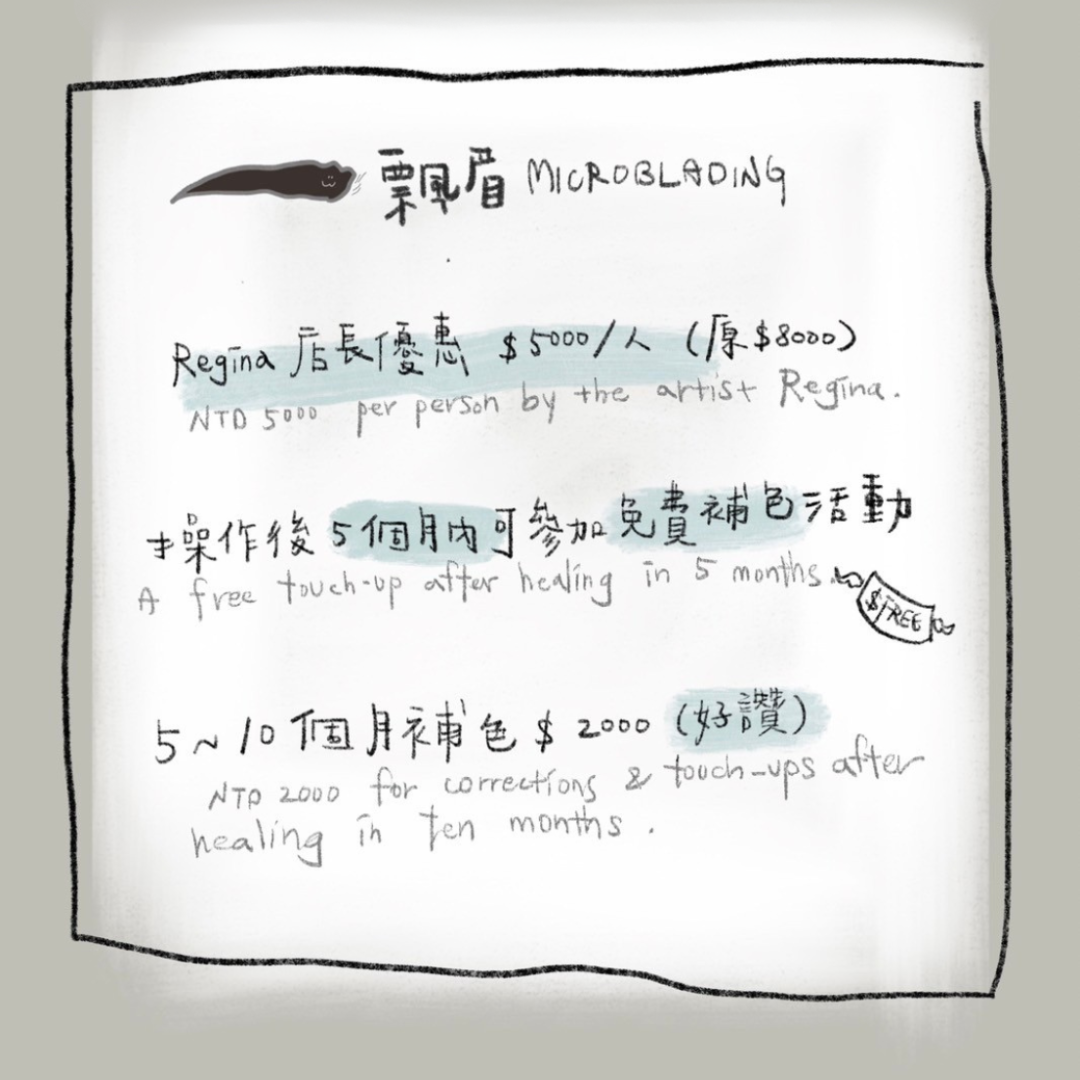 飄眉 MICROBLADING
Regina 店長優惠 $5000/人 (原$8000)
NTD 5000 per person by the artist Regina.
操作後 5個月內可參加免費補色活動
A free touch-up after healing in 5 months.
$FREE
5~10個月補色 $ 2000 (好讚)
NTD 2000 for corrections & touch-ups after
healing in ten months.